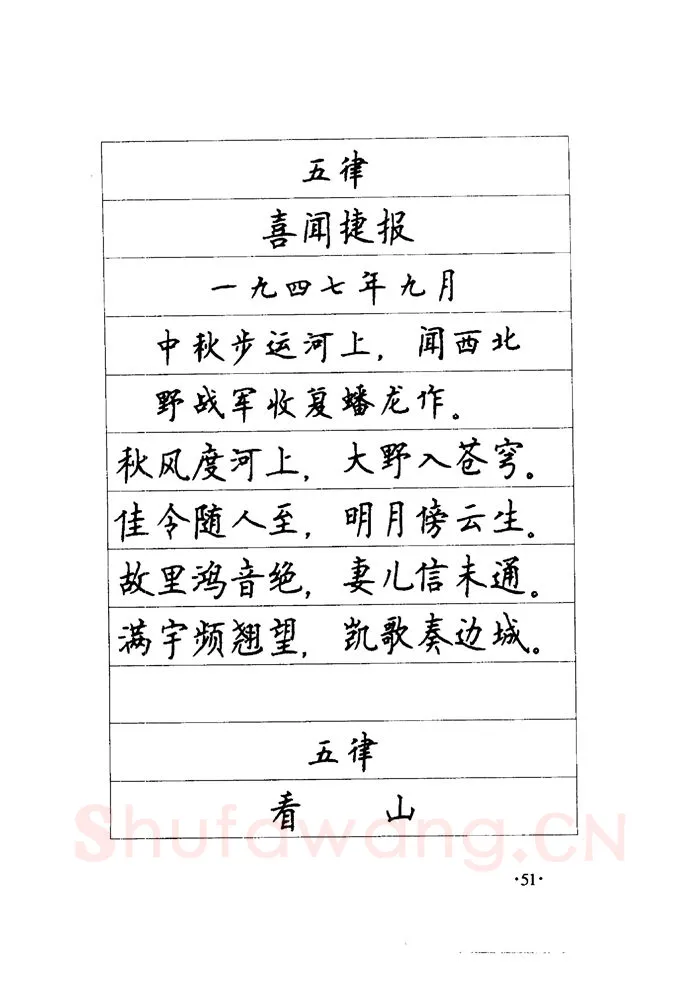 五律
喜闻捷报
一九四七年九月
中秋步运河上，闻西北
野战军收复蟠龙作。
秋风度河上，大野入苍穹。
佳令随人至，明月傍云生。
故里鸿音绝，妻儿信未通。
满宇频翘望，凯歌奏边城。
五律
看 山
Shufawang.CN
·51·